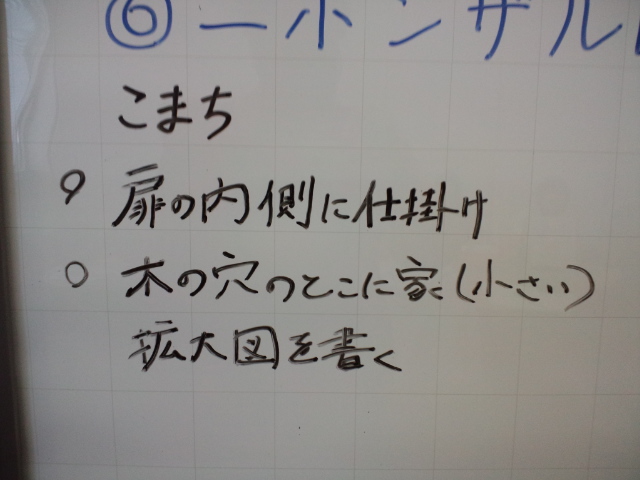 ⑥ーホンザル
こまち
○ 扉の内側に仕掛け
○ 木の穴のとこに家(小さい)
拡大図を書く